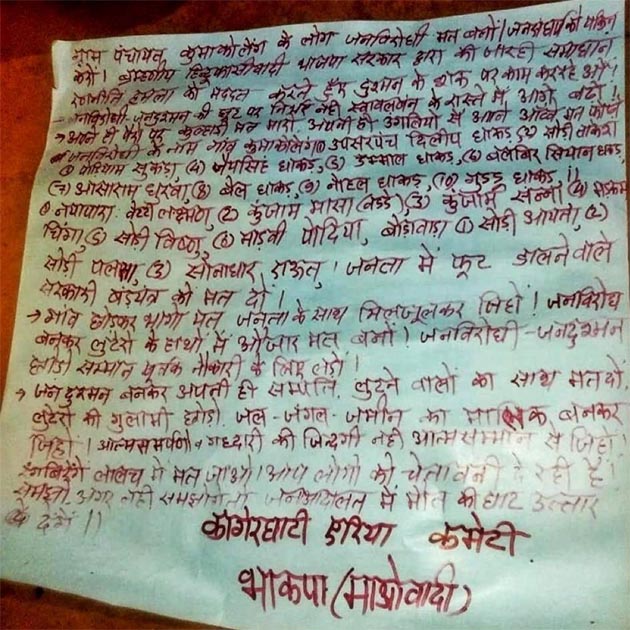 ग्राम पंचायत कुमाकोलेंग के लोग जनविरोधी मत बनों! जनसंघर्ष की पंक्ति
करो! ब्राह्मणीय हिन्दुफासीवादी भाजपा सरकार द्वारा की जा रही समाधान
रणनीति हमला को मदद करते हुए दुश्मन के शक पर काम कर रहे औ!
जनविरोधी, जनदुश्मन की छूट पर निर्भर नहीं स्वावलंबन के रास्ते में आगे बढो!
→ अपने ही पैरों पर कुल्हाडी मत मारो. अपनी ही उंगलियों से अपने आँखें मत फोडो
जनविरोधी के नाम गाँव कुमाकोलेंग ① उपसरपंच दिलीप धाकड, (2) सोडी बाकरा
③ पोडियाम सुकडा, (4) जयसिंह धाकड, (5) डमाल धाकड, (6) बलबिर सियान धाकड,
(7) आसाराम धुरवा, (8) बैल धाकड, (9) नोहल धाकड, (10) गुडडु धाकड,!!
① नयापारा वेट्टी लक्ष्मण, (2) कुंजाम मासा (वडडे), (3) कुंजाम सन्ना (4) मडकम
धिंगा, (5) सोडी विष्णु, (6) माडवी पोदिया, बोडावाडा ① सोडी आयता, (2)
सोडी पलमा, (3) सोनाधार राऊत्, ! जनता में फूट डालने वाले
सरकारी षंडयंत्र को मत दों!
→ गांव छोडकर भागो मत, जनता के साथ मिलजूलकर जिहो! जनविरोध
बनकर लुटेरों के हाथों में औजार मत बनों! जनविरोधी - जनदुश्मन
छोडो सम्मान पूर्वक नौकरी के लिए लडो!
→ जनदुश्मन बनकर अपनी ही सम्पत्ति, लुटने वालों का साथ मत दो,
लुटेरो की गुलामी छोडो. जल - जंगल - जमीन का मालिक बनकर
जिहो! आत्मसमर्पण व गद्दारी की जिन्दगी नहीं आत्मसम्मान से जिहो!
लालच में मत जाओ! आप लोगों को चेतावनी दे रही है!
समझो अगर नहीं समझोगे तो जनअदालत में मौत का घाट उत्तार
दे देंगें!!
कांगेरघाटी एरिया कमेटी
भाकपा (माओवादी)